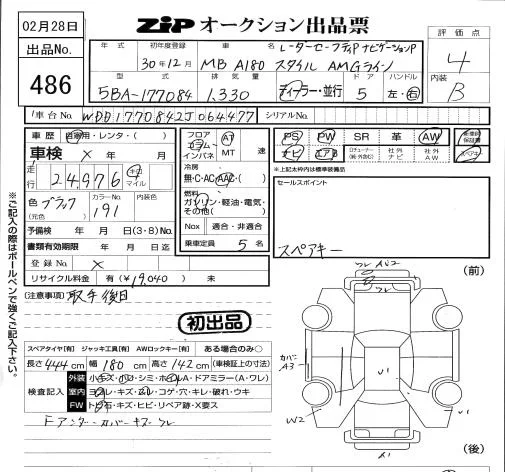 02月28日
ZIP オークション出品票
評価点
4
内装
B
出品No.
486
年式
初年度登録
30年12月
車名
MB A180 スタイル AMGライン
レーダーセーフティP ナビゲーションP
型式
5BA-177084
排気量
1.330
ディーラー・並行
ドア
5
ハンドル
左・右
車台No.
WDD1770842J064477
シリアルNo.
車歴
自家用・レンタ・( )
車検 × 年 月
走行
24,976
キロ
マイル
色
(元色)
ブラック
カラーNo.
191
予備検 年 月 日(3・8)No.
書類有効期限 年 月 日迄
登録No. ×
リサイクル料金 有(¥19,040) 未
フロア
コラム
インパネ
AT
MT
速
冷房
無・C・AC・AAC・( )
燃料
ガソリン・軽油・電気・
その他( )
Nox 適合・非適合
乗車定員 5 名
PS PW SR 革 AW
ナビ エアB
社外
ナビ
社外
AW
保証書
スペアキー
※上記太枠内は標準装備品
セールスポイント
スペアキー
(注意事項) 取予後日
初出品
スペアタイヤ[有] ジャッキ工具[有] AWロックキー[有] ある場合のみ○
長さ 444 cm 幅 180 cm 高さ 142 cm (車検証上の寸法)
検査記入
外装 小キズ・小ヘコ・シミ・ホイルA・ドアミラー(A・ワレ)
室内 ヨゴレ・キズ・スレ・コゲ・穴・キレ・破れ・ウキ
FW トビ石・キズ・ヒビ・リペア跡・X要ス
Fアンダーカバーキズ・ワレ
※ご記入の際はボールペンで強くご記入下さい。
(前)
(後)
カバー
A3
W2
U1
U1
A1